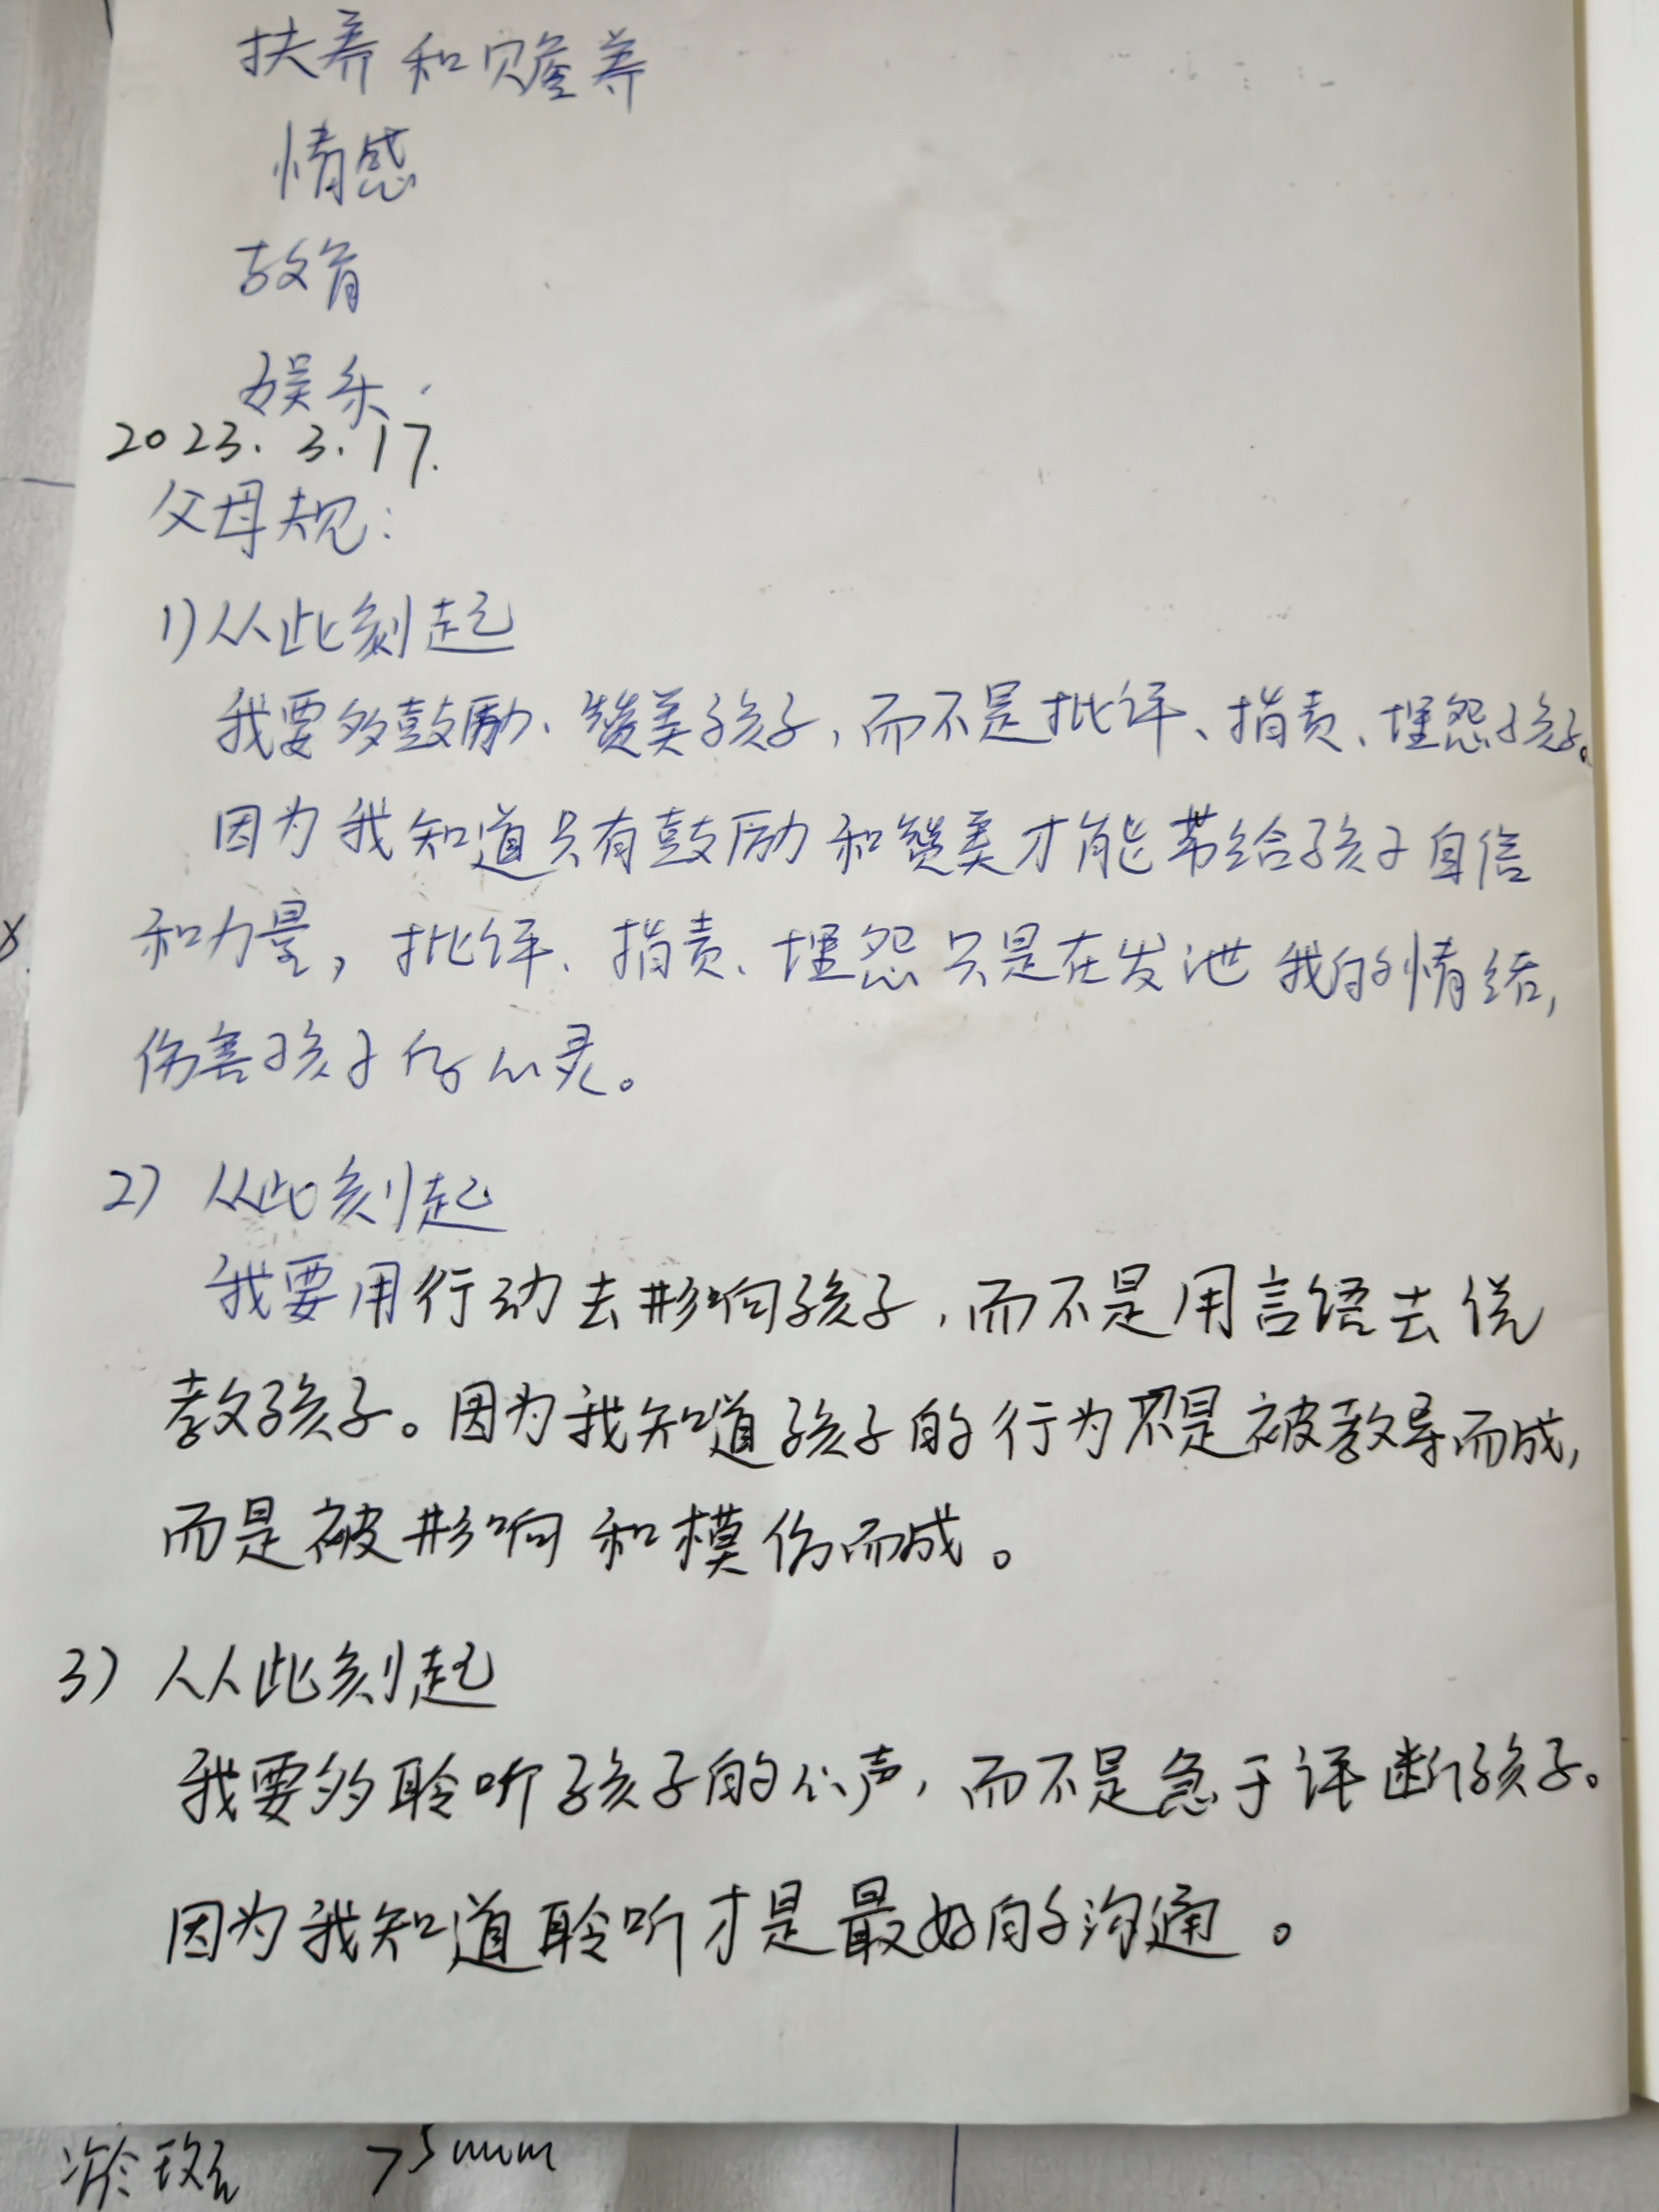 扶养和赡养
情感
教育
娱乐.
2023.3.17.
父母规:
1)从此刻起
我要多鼓励、赞美孩子,而不是批评、指责、埋怨孩子。
因为我知道只有鼓励和赞美才能带给孩子自信
和力量,批评、指责、埋怨只是在发泄我的情绪,
伤害孩子的心灵。
2)从此刻起
我要用行动去影响孩子,而不是用言语去说
教孩子。因为我知道孩子的行为不是被教导而成,
而是被影响和模仿而成。
3)从此刻起
我要多聆听孩子的心声,而不是急于评断孩子。
因为我知道聆听才是最好的沟通。
瘀斑 >5mm